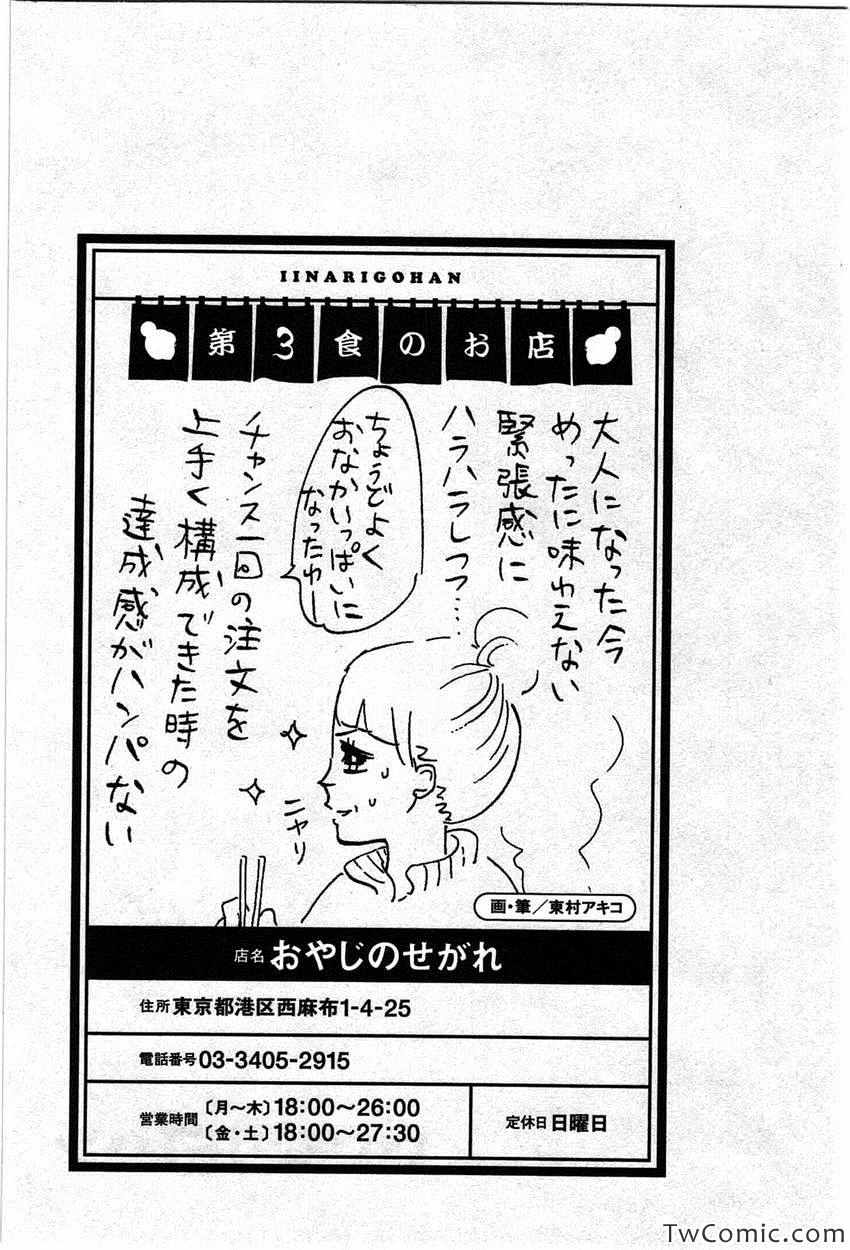 IINARIGOHAN
第3食のお店
大人になった今
めったに味わえない
緊張感に
ハラハラしつつ…
ちょうどよく
おなかいっぱいに
なったわー
チャンス一回の注文を
上手く構成できた時の
達成感がハンパない
ニヤリ
画・筆／東村アキコ
店名 おやじのせがれ
住所 東京都港区西麻布1-4-25
電話番号 03-3405-2915
営業時間 〔月〜木〕18:00〜26:00
〔金・土〕18:00〜27:30
定休日 日曜日
TwComic.com